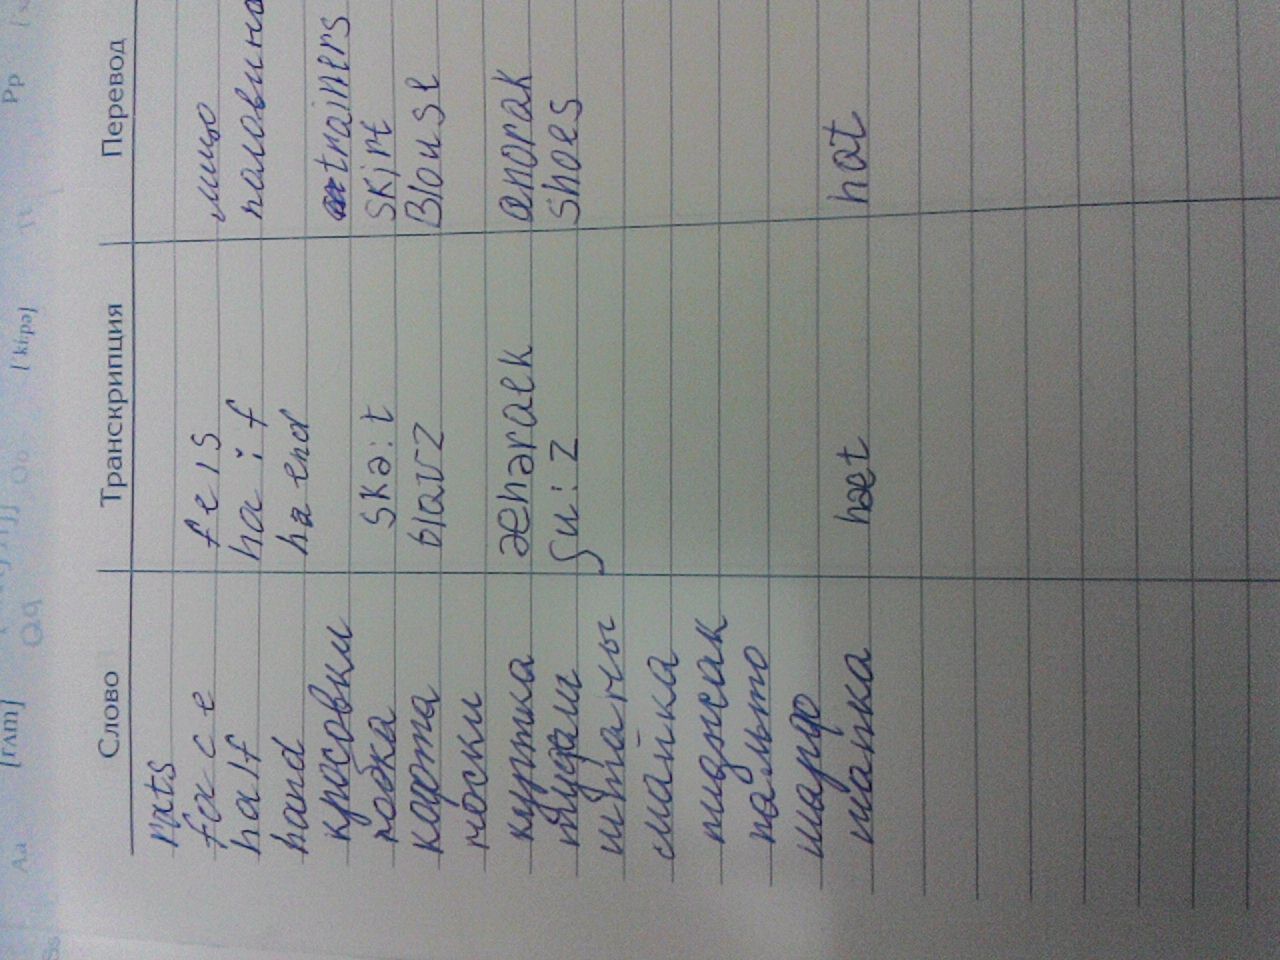 Слово Транскрипция Перевод
face feis лицо
half ha:f половина
hand haend
кроссовки trainers
юбка skə:t skirt
кофта blauz Blouse
носки
куртка ænəraek anorak
туфли ʃu:z shoes
штаны
майка
пиджак
пальто
шарф
шапка hæt hat
[rʌm] Aa
Qq
['ki:pə] Oo
Pp
Ss